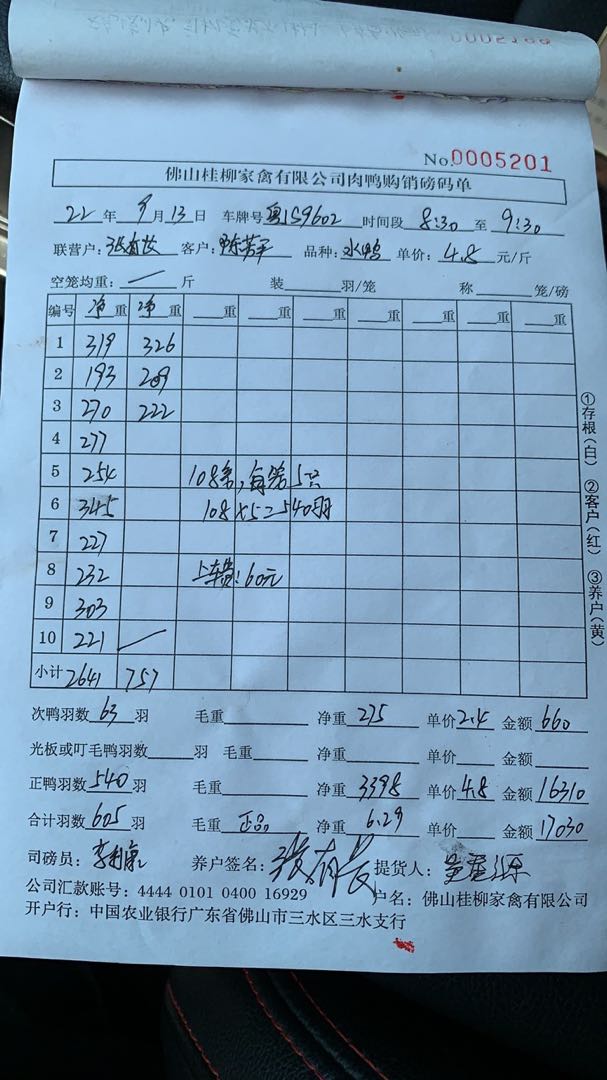 No.0005201
佛山桂柳家禽有限公司肉鸭购销磅码单
22年9月13日 车牌号粤JS9602 时间段8:30至9:30
联营户:张有 客户: 品种:水鸭 单价:4.8元/斤
空笼均重:斤 装羽/笼 称笼/磅
编号 净重 净重 重 重 重 重 重 重
1 319 326
2 193 209
3 270 222
4 277
5 254 108笼,每笼5只
6 345 108×5=540羽
7 227
8 232 上车费:60元
9 303
10 221
小计 2641 757
①存根(白) ②客户(红) ③养户(黄)
次鸭羽数63羽 毛重 净重275 单价2.4 金额660
光板或叮毛鸭羽数羽 毛重 净重 单价 金额
正鸭羽数540羽 毛重 净重3398 单价4.8 金额16310
合计羽数605羽 毛重正品 净重6.29 单价 金额17030
司磅员:李 养户签名:张有 提货人:
公司汇款账号:4444 0101 0400 16929 户名:佛山桂柳家禽有限公司
开户行:中国农业银行广东省佛山市三水区三水支行